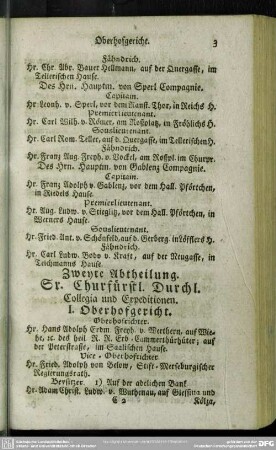 Oberhofgericht. 3
Fähndrich.
Hr. Chr. Abr. Bauer Hellmann, auf der Quergasse, im
Tellerischen Hause.
Des Hrn. Hauptm. von Sperl Compagnie.
Capitain.
Hr. Leonh. v. Sperl, vor dem Ranst. Thor, in Reichs H.
Premierlieutenant.
Hr. Carl Wilh. v. Römer, am Roßplatz, in Fröhlichs H.
Souslieutenant.
Hr. Carl Rom. Teller, auf d. Quergasse, im Tellerischen H.
Fähndrich.
Hr. Franz Aug. Freyh. v. Bockel, am Roßpl. im Churpr.
Des Hrn. Hauptm. von Gablenz Compagnie.
Capitain.
Hr. Franz Adolph v. Gablenz, vor dem Hall. Pförtchen,
in Riedels Hause.
Premierlieutenant.
Hr. Aug. Ludw. v. Stieglitz, vor dem Hall. Pförtchen, in
Werners Hause.
Souslieutenant.
Hr. Fried. Ant. v. Schönfeld, auf d. Gerberg. in Löfflers H.
Fähndrich.
Hr. Carl Ludw. Bodo v. Kraft, auf der Neugasse, in
Teichmanns Hause.
Zweyte Abtheilung.
Sr. Churfürstl. Durchl.
Collegia und Expeditionen.
I. Oberhofgericht.
Oberhofrichter.
Hr. Hans Adolph Erdm. Freyh. v. Werthern, auf Wie-
he, ec. des heil. R. R. Erb-Cammerthürhüter; auf
der Petersstraße, im Saalischen Hause.
Vice-Oberhofrichter.
Hr. Fried. Adolph von Below, Stift-Merseburgischer
Regierungsrath.
Beysitzer. 1) Auf der adelichen Bank
Hr. Adam Christ. Ludw. v. Wuthenau, auf Glesina und
Kölza,